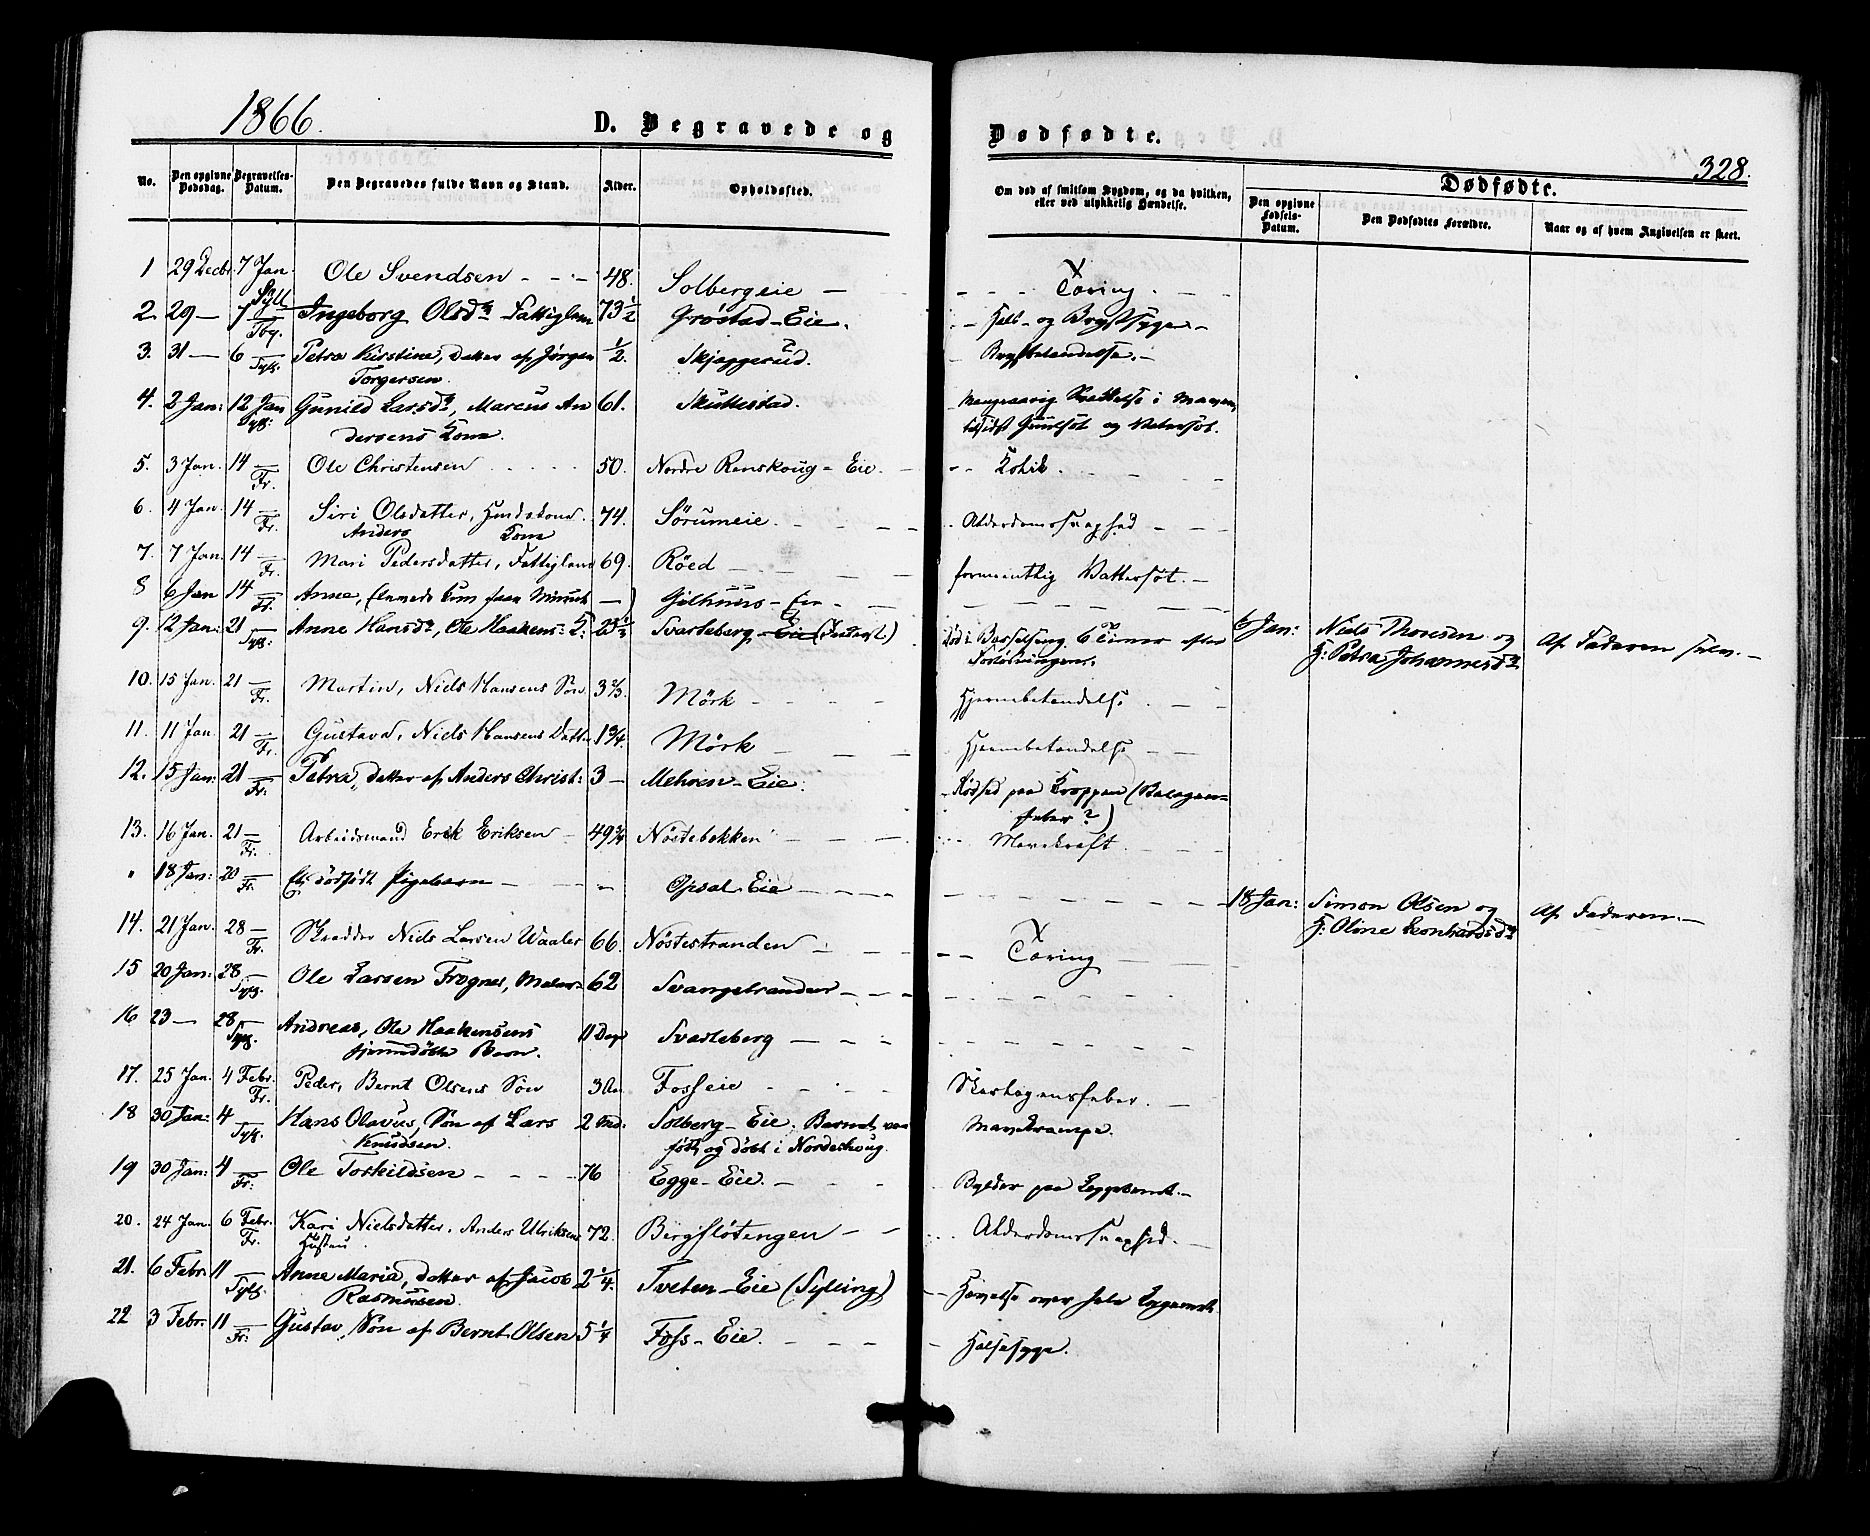 1866.
D. Begravede og
Dødfødte.
328.
No.
Den opgivne Dødsdag.
Begravelses-Datum.
Den Begravedes fulde Navn og Stand.
Alder.
Opholdssted.
Om død af smitsom Sygdom, og da hvilken, eller ved ulykkelig Hændelse.
Dødfødte.
Den opgivne Fødsels-Datum.
Den Dødfødtes Forældre.
Naar og af hvem Angivelsen er skeet.
1 29 Decbr. 7 Jan. Ole Svendsen - - - 48. Solbergeie - - - - Tæring.
2. 29 — 7 Ingeborg Olsdr Fattiglem 73 1/2 Grøstad-Eie. - Hals- og Brystsyge -
3. 31 — 6 — Sylg. Petra Kirstine, Datter af Jørgen 1/2. Skjæggerud. - Brystbetændelse. -
Torgersen.
4. 2 Jan: 12 Jan Sylg. Gunild Larsdr, Marcus An 61. Skuttestad.
dersens Kone. og Vatersot.
5. 3 Jan. 14 — Fr. Ole Christensen 50. Nordre Renskoug-Eie. - - - Kolik.
6. 4 Jan. 14 — Fr. Siri Olsdatter, 74. Sørumeie. - - - Alderdomssvaghed
Anders Kone
7. 7 Jan. 14 — Fr. Mari Pedersdatter, Fattiglem 69. Røed - - formentlig Vattersot. -
8 6 Jan 14 — Fr. Anne, - Gilhuus-Eie -
9. 12 Jan: 21 — Sylg. Anne Hansdr, Ole Haakens: K: 23 1/2 Svarteberg-Eie Død i Barselseng 6 Timer efter
Forløsningen.
6 Jan: Niels Thoresen og Af Faderen selv. -
H: Petra Johannesdr
10. 15 Jan. 21 — Fr. Martin, Niels Hansens Søn 3 2/3. Mörk - - - Hjernebetændelse
11. 11 Jan. 21 — Fr. Gustava, Niels Hansens Datter 1 3/4. Mörk - Hjernebetændelse
12. 15 Jan: 21 — Fr. Petra, datter af Anders Christ: 3 — Mehren-Eie. - Kroppen
feber?)
13. 16 Jan. 21 — Fr. Arbeidsmand Erik Eriksen - 49 3/4 Nøstebakken - - Mavekræft.
" 18 Jan: 20 — Fr. Et dødfødt Pigebarn - - - Opsal-Eie -
18 Jan: Simon Olsen og Af Faderen. -
H: Oline Leonhardsdr
14. 21 Jan. 28 — Fr. Skrædder Niels Larsen Waaler 66. Nøstestranden - - - Tæring
15 20 Jan: 28 — Sylg. Ole Larsen Frognes, Maler - 62 Svangstranden - - -
16 23 — 28 — Sylg. Andreas, Ole Haakensens 11 Dage Svarteberg - - -
hjemmedøbte Barn.
17. 25 Jan. 4 Febr. Fr. Peder, Bernt Olsens Søn 3 Fosseie - - Skarlagensfeber. -
18 30 Jan: 4 — Sylg. Hans Olavus, Søn af Lars 2 Solberg-Eie. Barnet var Mavekrampe.
Knudsen. født og døbt i Norderhoug.
19 30 Jan: 4 — Fr. Ole Torkildsen - - - 76 Egge-Eie. - - Bylder paa
20. 24 Jan. 6 Febr. Fr. Kari Nielsdatter, Anders Ulriksens 72. Bergfløtengen - - Alderdomssvaghed. -
Hustru
21. 6 Febr. 11 — Sylg. Anne Maria, datter af Jacob 2 1/4. Tveten-Eie (Sylling) - - Hævelse over hele Legemet.
Rasmussen.
22 3 Febr. 11 — Fr. Gustav, Søn af Bernt Olsen 5 1/4 Foss-Eie. - - - Halssyge.